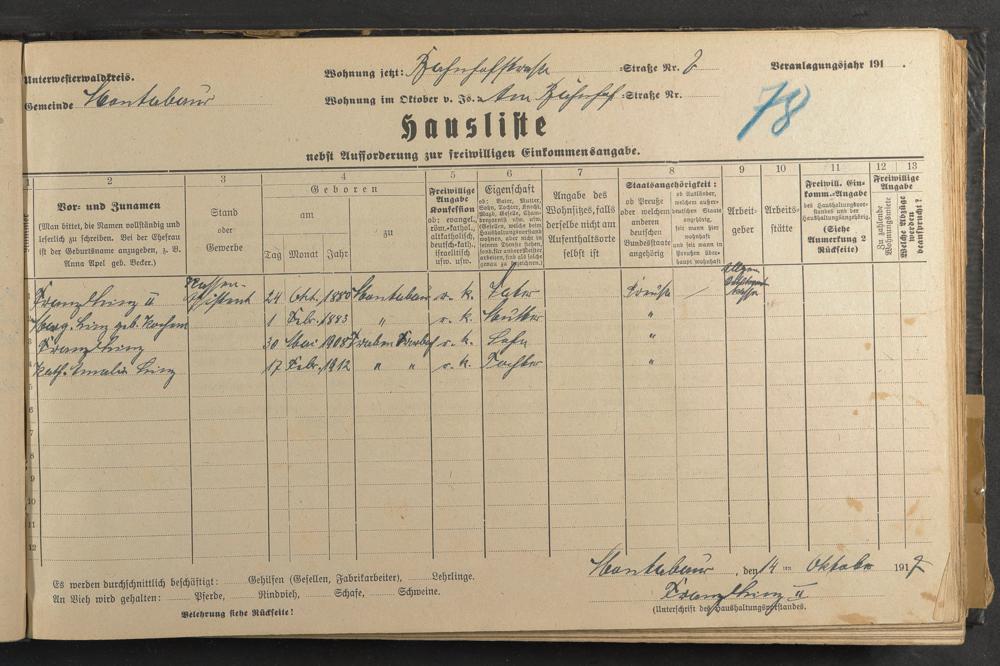 Unterwesterwaldkreis.
Wohnung jetzt: Bahnhofstraße Straße Nr. 2
Veranlagungsjahr 191 .
Gemeinde Montabaur
Wohnung im Oktober v. Js.: Am Bahnhof Straße Nr.
78
Hausliste
nebst Aufforderung zur freiwilligen Einkommensangabe.
1 2 3 4 5 6 7 8 9 10 11 12 13
Vor- und Zunamen
(Man bittet, die Namen vollständig und
leserlich zu schreiben. Bei der Ehefrau
ist der Geburtsname anzugeben, z. B.
Anna Apel geb. Becker.)
Stand
oder
Gewerbe
Geboren
am
zu
Tag Monat Jahr
Freiwillige
Angabe
Konfession
ob: evangel.,
röm.-kathol.,
altkathol.,
deutsch-kath.,
israelitisch
usw. usw.
Eigenschaft
ob: Vater, Mutter,
Sohn, Tochter, Knecht,
Magd, Geselle,
Angabe des
Wohnsitzes, falls
derselbe nicht am
Aufenthaltsorte
selbst ist
Staatsangehörigkeit:
ob Preuße
oder welchem
anderen
deutschen
Bundesstaate
angehörig
ob Ausländer,
welchem außer-
deutschen Staate
angehörig,
seit wann hier
wohnhaft
und seit wann in
Preußen über-
haupt wohnhaft
Arbeit-
geber
Arbeits-
stätte
Freiwill. Ein-
komm.-Angabe
des Haushaltungsvor-
standes und der
Haushaltungsangehörig.
(Siehe
Anmerkung 2
Rückseite)
Freiwillige
Angabe
Zu zahlende
Wohnungsmiete
Welche Abzüge
werden
beansprucht?
Kassen-
Franz Linz II Assistent 24 Okt. 1880 Montabaur r. k. Vater Preuße /
Marg. Linz geb. Kochem 1 Febr. 1883 " r. k. Mutter "
Franz Linz 30 Mai 1908 Traben Trarbach r. k. Sohn "
Kath. Amalia Linz 17 Febr. 1912 " " r. k. Tochter "
5
6
7
8
9
10
11
12
Es werden durchschnittlich beschäftigt: Gehilfen (Gesellen, Fabrikarbeiter), Lehrlinge.
An Vieh wird gehalten: Pferde, Rindvieh, Schafe, Schweine.
Belehrung siehe Rückseite!
Montabaur, den 14 ten Oktober 1917
Franz Linz II
(Unterschrift des Haushaltungsvorstandes.